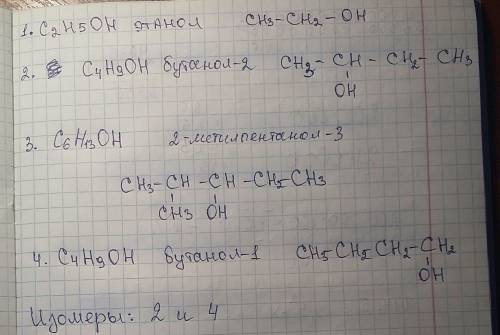 1. C2H5OH этанол CH3-CH2-OH
2. C4H9OH бутанол-2 CH3-CH-CH2-CH3
OH
3. C6H13OH 2-метилпентанол-3
CH3-CH-CH-CH2-CH3
CH3 OH
4. C4H9OH бутанол-1 CH3-CH2-CH2-CH2
OH
Изомеры: 2 и 4